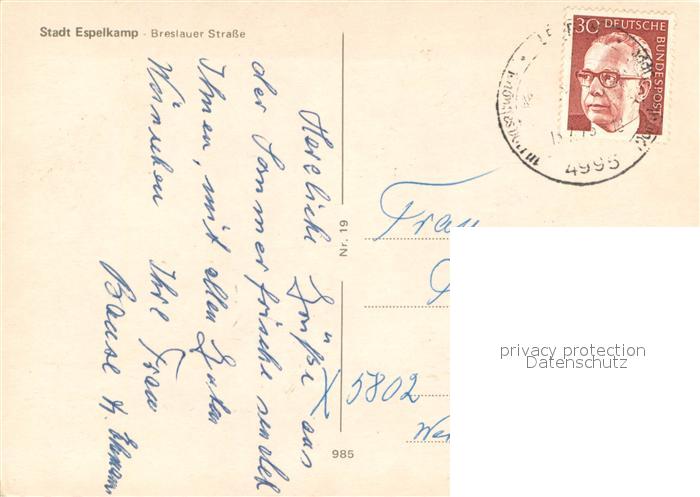 Stadt Espelkamp - Breslauer Straße
Herzliche Grüße aus
der Sommerfrische sendet
Ihnen, mit allen Guten
Wünschen Ihre Frau
Bause u.
30 DEUTSCHE
BUNDESPOST
4995
Nr. 19
985
Frau
X 5802
privacy protection
Datenschutz